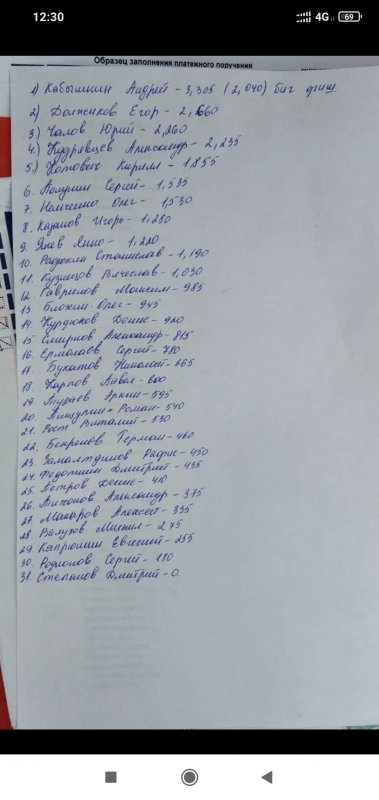 12:30
4G
69
Образец заполнения платежного поручения
1) Кобылкин Андрей - 3,305 (2,040) биг фиш
2) Должиков Егор - 2,660
3) Чалов Юрий - 2,260
4.) Кудрявцев Александр - 2,235
5.) Кирилл - 1,855
6. Сергей - 1,535
7. Немченко Олег - 1,530
8. Казаков Игорь - 1,280
9. Янно - 1,220
10. Радюкин Станислав - 1,190
11. Кузнецов Вячеслав - 1,030
12. Гаврилов Максим - 985
13. Блохин Олег - 945
14. Курдюков Денис - 920
15 Смирнов Александр - 815
16. Ермолаев Сергей - 780
17. Букатов Николай - 665
18. Карпов Павел - 600
19. Эркин - 595
20. Роман - 540
21. Рост Виталий - 530
22. Герман - 460
23. - 450
24. Дмитрий - 435
25 Петров Денис - 410
26. Александр - 375
27. Макаров Алексей - 335
28. - 275
29. Евгений - 255
30. Родионов Сергей - 180
31. Степанов Дмитрий - 0